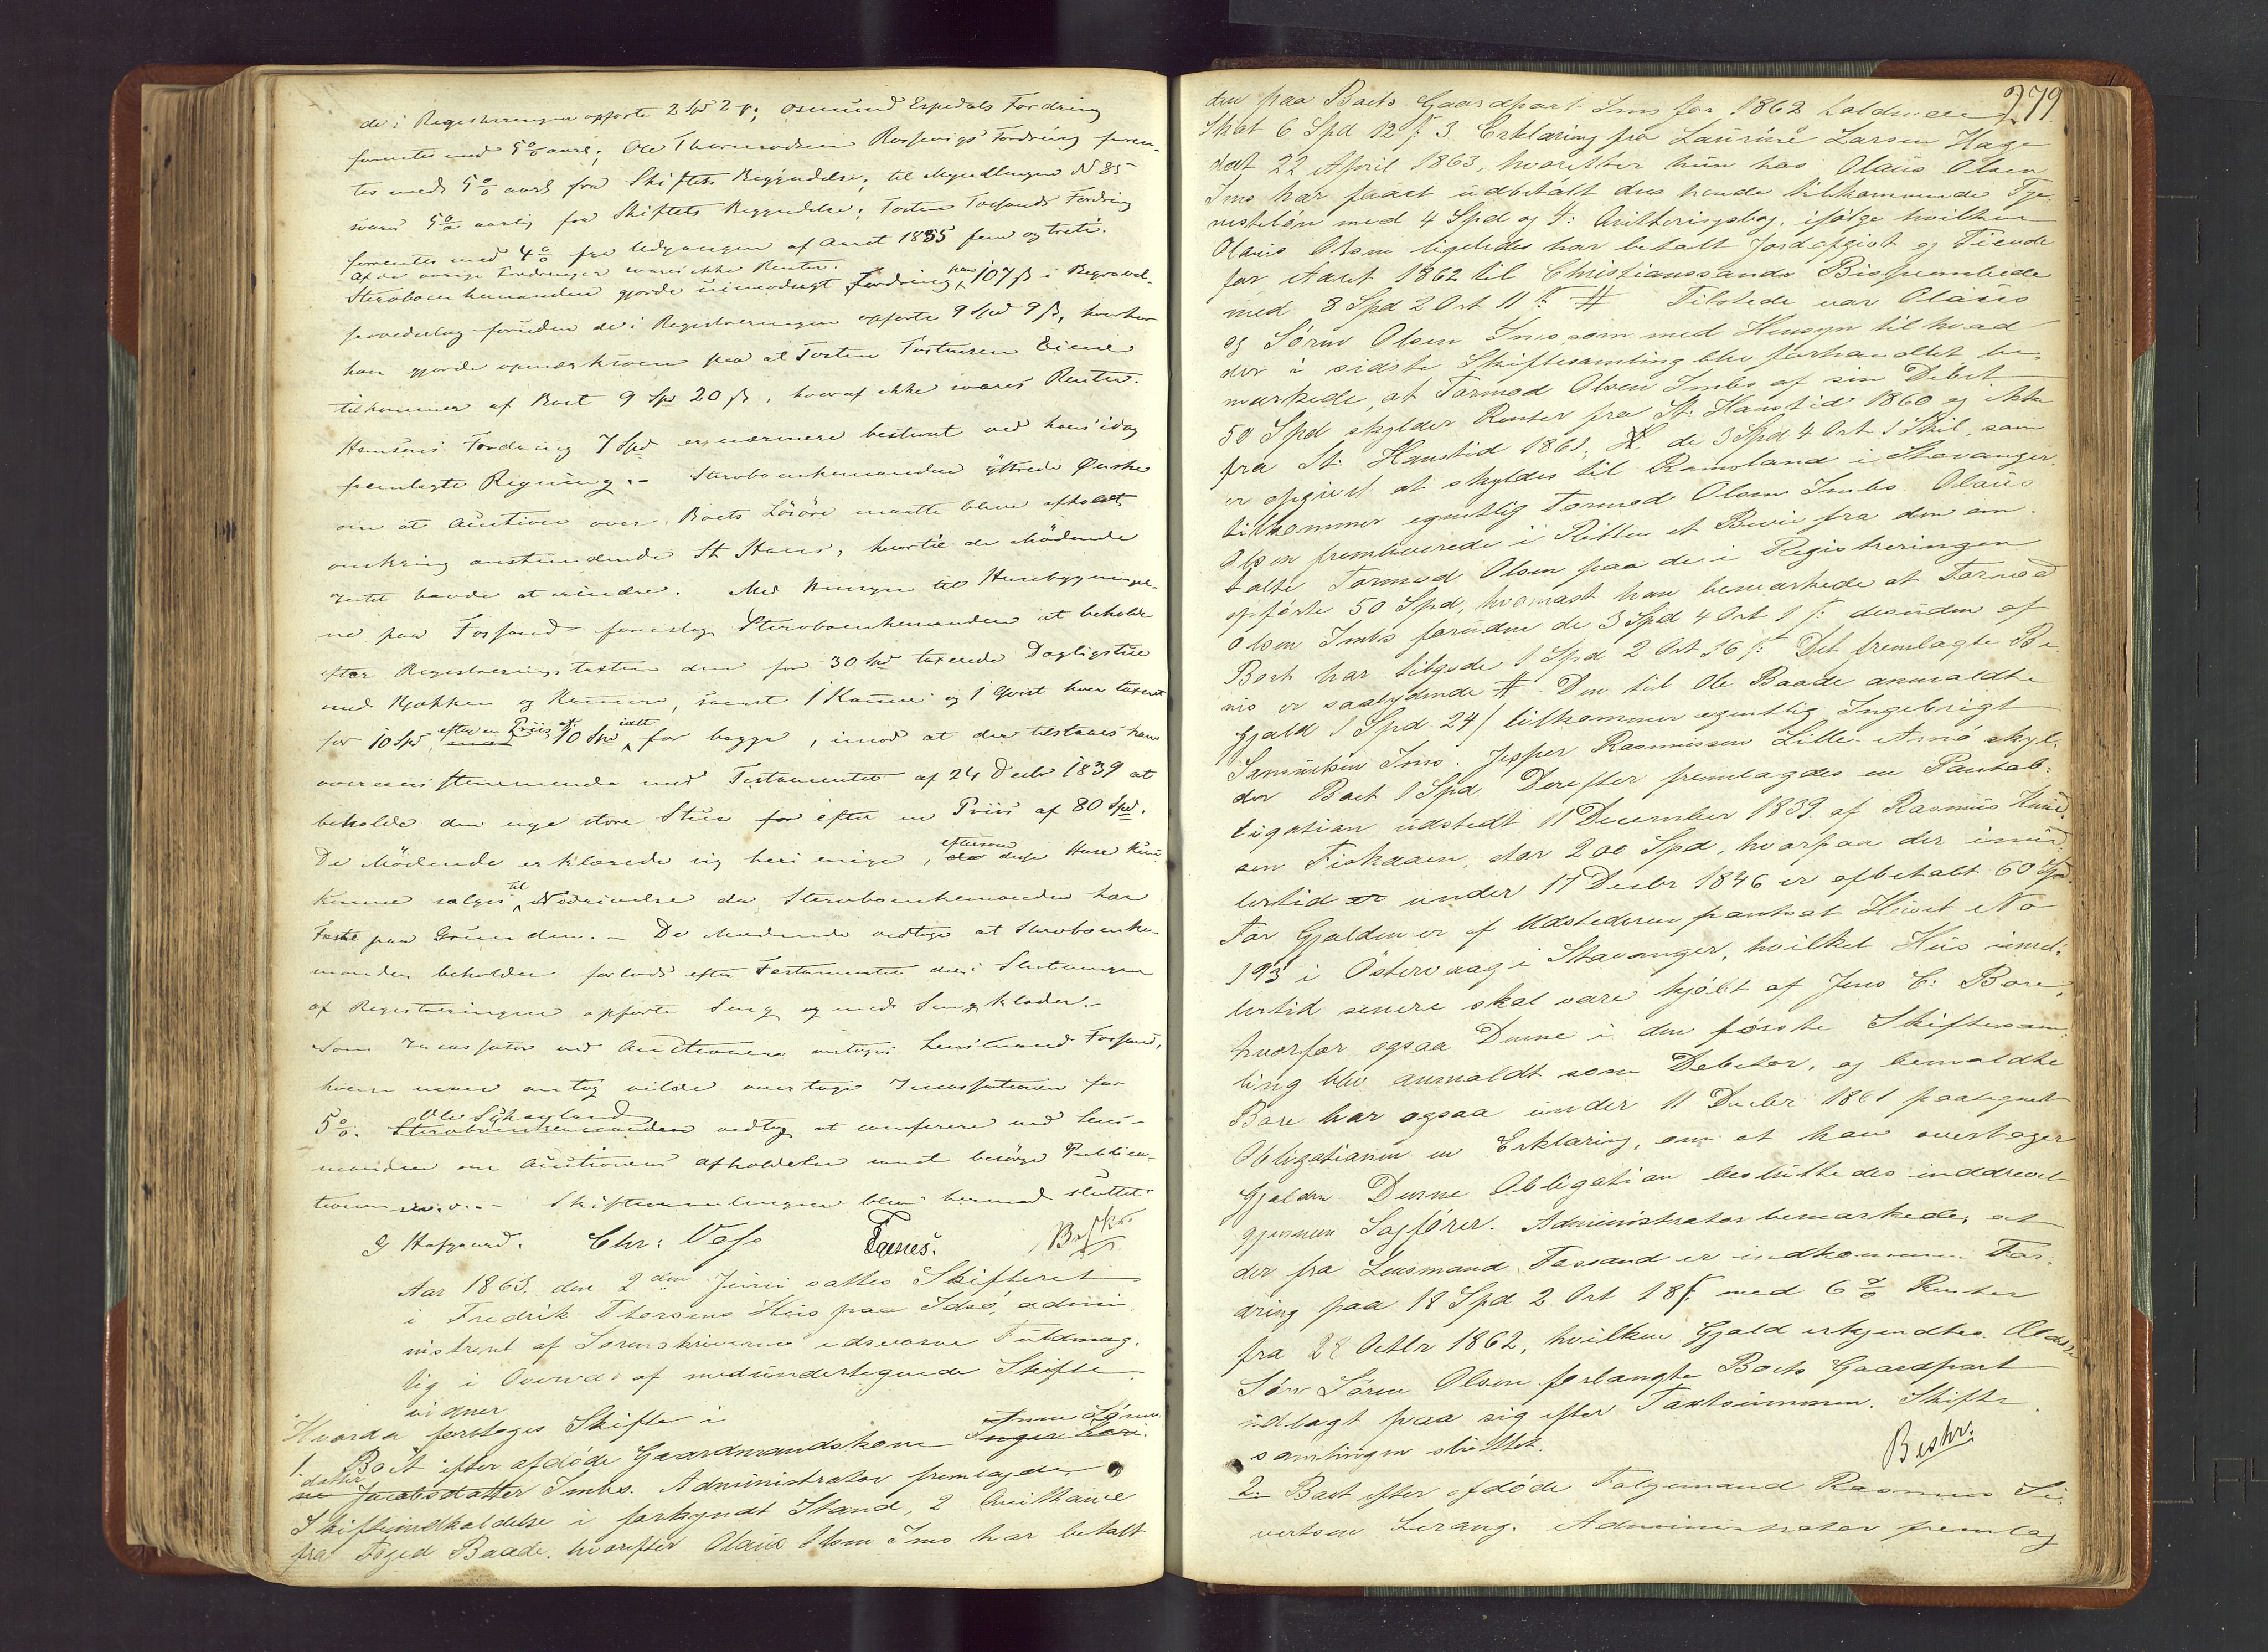 de i Registreringen opførte 2 Spd 2 ß; Osmund Espedals Fordring
forrentes med 5% aarl; Ole Thormodsen Rossevigs Fordring forren-
tes med 5% aarl fra Skiftets Begyndelse; til Myndlingen N 85
svares 5% aarlig fra Skiftets Begyndelse; Torsten Fossands Fordring
forrentes med 4% fra Udgangen af Aaret 1835 fem og treti.
Af de øvrige Fordringer svares ikke Renter.
Sterboenkemanden gjorde Fordring paa 107 ß i Begravel-
foruden de i Registreringen opførte 9 Spd 9 ß, hvorhos
han gjorde opmærksom paa at Torsten Torstensen Eiene
tilkommer af Boet 9 Spd 20 ß, hvoraf ikke svares Renter.
Hansens Fordring 7 Spd er nærmere bestemt ved hans idag
fremlagte Regning. - Sterboenkemanden yttrede Ønske
om at Auction over Boets Løsøre maatte blive afholdt
omkring anstundende St Hans, hvortil de Mødende
Intet havde at erindre. Med Hensyn til Husebygninger-
ne paa Fossand foreslog Sterboenkemanden at beholde
efter Registreringstaxten den for 30 Spd taxerede Dagligstue
med Kjøkken og Kammer, samt 1 Kanne og 1 Qvist hver taxeret
for 10 Spd efter en Priis af 10 Spd ialt for begge, imod at der tilstaaes ham
overensstemmende med Testamentet af 24 Decbr 1839 at
beholde den nye store Stue for efter en Priis af 80 Spd.
De Mødende erklærede sig heri enige, eftersom disse Huse kun
kunne sælges til Nedrivelse da Sterboenkemanden har
Fæste paa Grunden. - De Mødende vedtoge at Sterboenke-
manden beholder forlods efter Testamentet den i Slutningen
af Registreringen opførte Seng og med Sengklæder. -
Som Incassator ved Auctionen antoges Lensmand Fossand,
5%. Ole vedtog at conferere med Lens-
manden om Auctionens afholdelse samt besørge Publica-
tionen m.v. - Skiftesamlingen blev hermed sluttet
G Hafgaard. Chr: Voss Taenes. Beskr.
Aar 1863 den 2den Juni sattes Skifteret
i Fredrik Thorsens Huus paa Idsø, admi-
nistreret af Sorenskriverens edsvorne Fuldmæg-
tig i Overvær af medundertegnede Skifte-
vidner
Hvorda foretoges Skifte i
1. Boet efter afdøde Gaardmandskone Anne Søren-
datter Jacobsdatter Imbs. Administrator fremlagde
Skifteindkaldelse i forkyndt Stand, 2 Qvittance
fra Foged Baade, hvorefter Olaus Olsen Ims har betalt
279
den paa Boets Gaardpart Ims for 1862 faldende
Skat 6 Spd 12 ß 3 Erklæring fra Laurine Larsen Hage
dat 22 April 1863, hvorefter hun hos Olaus Olsen
Ims har faaet udbetalt den hende tilkommende Tje-
nesteløn med 4 Spd og 4: Qvitteringsbog, ifølge hvilken
Olaus Olsen ligeledes har betalt Jordafgivt og Tiende
for Aaret 1862 til Christianssands Bispeembede
med 8 Spd 2 Ort 11 ß # Tilstede var Olaus
og Søren Olsen Ims som med Hensyn til hvad
der i sidste Skiftesamling blev forhandlet be-
mærkede, at Tormod Olsen Imbs af sin Debet
50 Spd skylder Renter fra St: Hanstid 1860 og ikke
fra St: Hanstid 1861; de 3 Spd 4 Ort 1 Skil, som
er opgivet at skyldes til Ramsland i Stavanger
tilkommer egentlig Tormod Olsen Imbs. Olaus
Olsen fremleverede i Retten et Bevis fra den om-
talte Tormod Olsen paa de i Registreringen
opførte 50 Spd, hvornæst han bemærkede at Tormod
Olsen Imbs foruden de 3 Spd 4 Ort 1 ß desuden af
Boet har tilgode 1 Spd 2 Ort 16 ß: Det fremlagte Be-
vis er saalydende #. Den til Ole Baade anmeldte
Gjæld 1 Spd 24 ß tilkommer egentlig Ingebrigt
Samuelsen Ims. Jesper Rasmussen Lille-Amø skyl-
der Boet 1 Spd. Derefter fremlagdes en Pantob-
ligation udstedt 11 December 1839 af Rasmus
sen Fiskaaen, stor 200 Spd, hvorpaa der imid-
lertid er under 11 Decbr 1846 er afbetalt 60 Spd.
For Gjælden er af Udstederen pantsat Huset No
193 i Østervaag i Stavanger, hvilket Huus imid-
lertid senere skal være kjøbt af Jens C: Bore,
hvorfor ogsaa Denne i den første Skiftesam-
ling blev anmeldt som Debitor, og bemeldte
Bore har ogsaa under 11 Decbr 1861 paategnet
Obligationen en Erklæring, om at han overtager
Gjælden. Denne Obligation besluttedes inddrevet
gjennem Sagfører. Administrator bemærkede, at
der fra Lensmand Fossand er indkommen For-
dring paa 18 Spd 2 Ort 18 ß med 6% Renter
fra 28 Octbr 1862, hvilken Gjæld erkjendtes. Ældste
Søn Søren Olsen forlangte Boets Gaardpart
udlagt paa sig efter Taxtsummen. Skifte-
samlingen sluttet.
Beskr.
2. Boet efter afdøde Følgemand Rasmus Si-
vertsen Lerang. Administrator fremlag